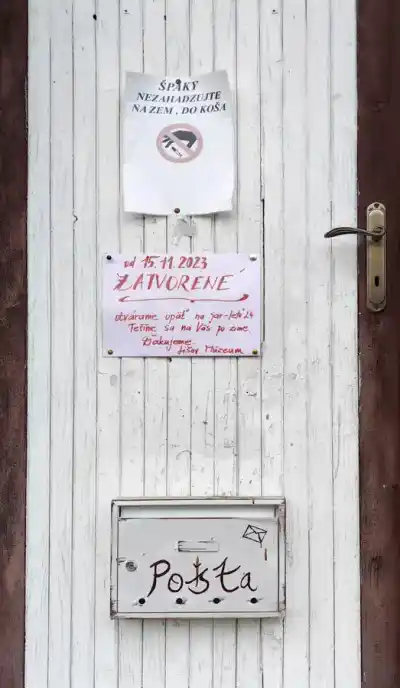 ŠPAKY
NEZAHADZUJTE
NA ZEM , DO KOŠA
od 15.11.2023
ZATVORENÉ
otvárame opäť na jar-leto 24
Tešíme sa na Vás po zime
Ďakujeme
Jišov Múzeum
Pošta